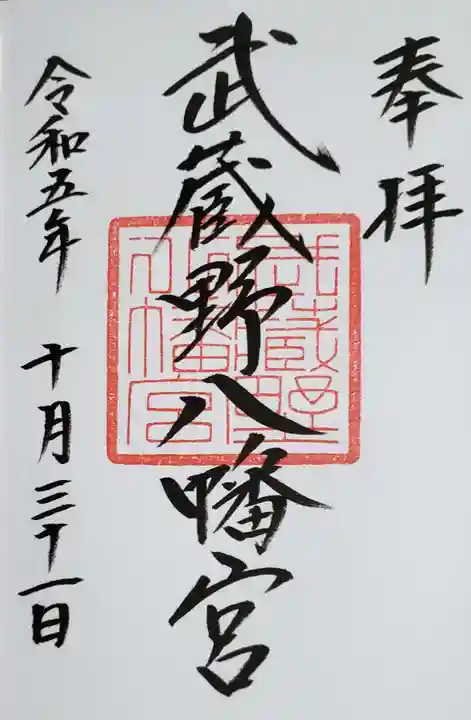 奉拝
武蔵野八幡宮
武蔵野八幡宮
令和五年 十月三十一日